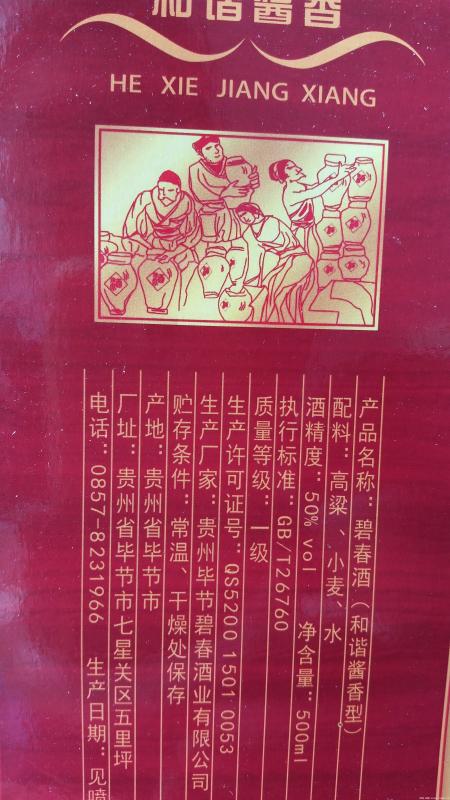 和谐酱香
HE XIE JIANG XIANG
产品名称：碧春酒（和谐酱香型）
配料：高粱、小麦、水
酒精度：50% vol 净含量：500ml
执行标准：GB/T26760
质量等级：一级
生产许可证号：QS5200 1501 0053
生产厂家：贵州毕节碧春酒业有限公司
贮存条件：常温、干燥处保存
产地：贵州省毕节市
厂址：贵州省毕节市七星关区五里坪
电话：0857-8231966 生产日期：见喷